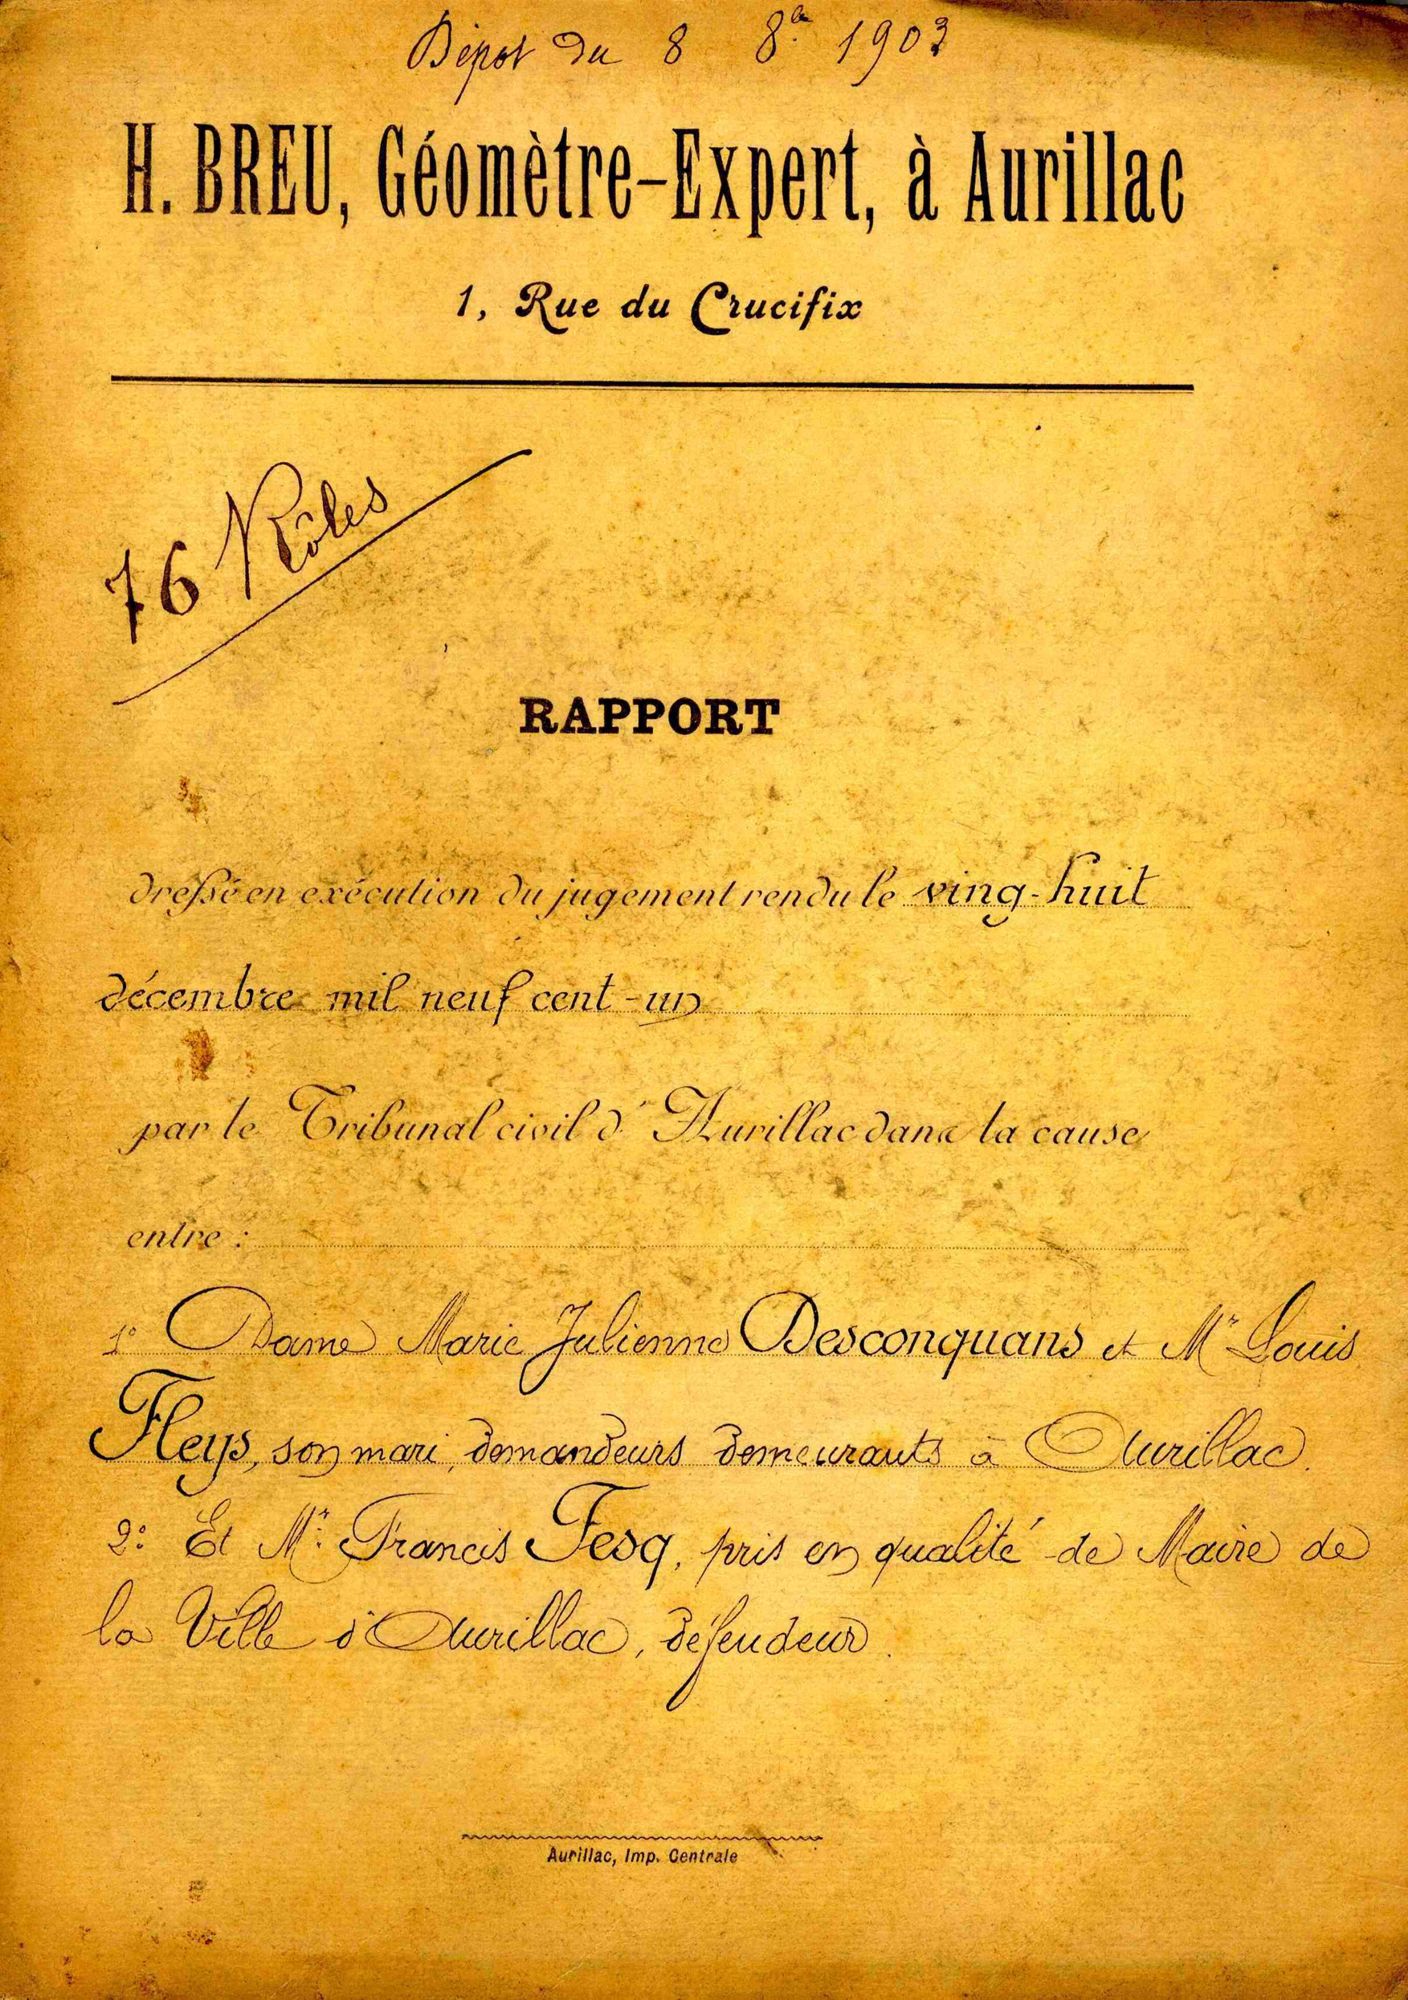 Dépot du 8 8bre 1903
H. BREU, Géomètre-Expert, à Aurillac
1, Rue du Crucifix
76 Rôles
RAPPORT
dressé en exécution du jugement rendu le ving-huit
décembre mil neuf cent-un
par le Tribunal civil d'Aurillac dans la cause
entre :
1º Dame Marie Julienne Desconquans et Mr Louis
Fleys, son mari, demandeurs demeurants à Aurillac.
2º Et Mr. Francis Fesq, pris en qualité de Maire de
la Ville d'Aurillac, défendeur.
Aurillac, Imp. Centrale